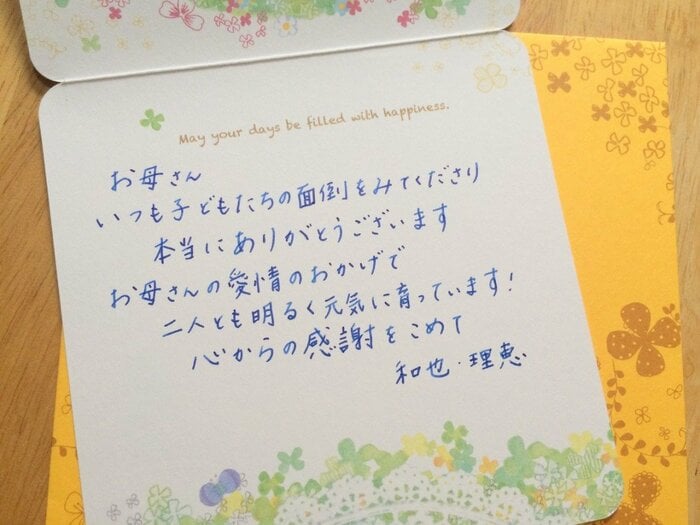 May your days be filled with happiness.
お母さん
いつも子どもたちの面倒をみてくださり
本当にありがとうございます
お母さんの愛情のおかげで
二人とも明るく元気に育っています!
心からの感謝をこめて
和也・理恵